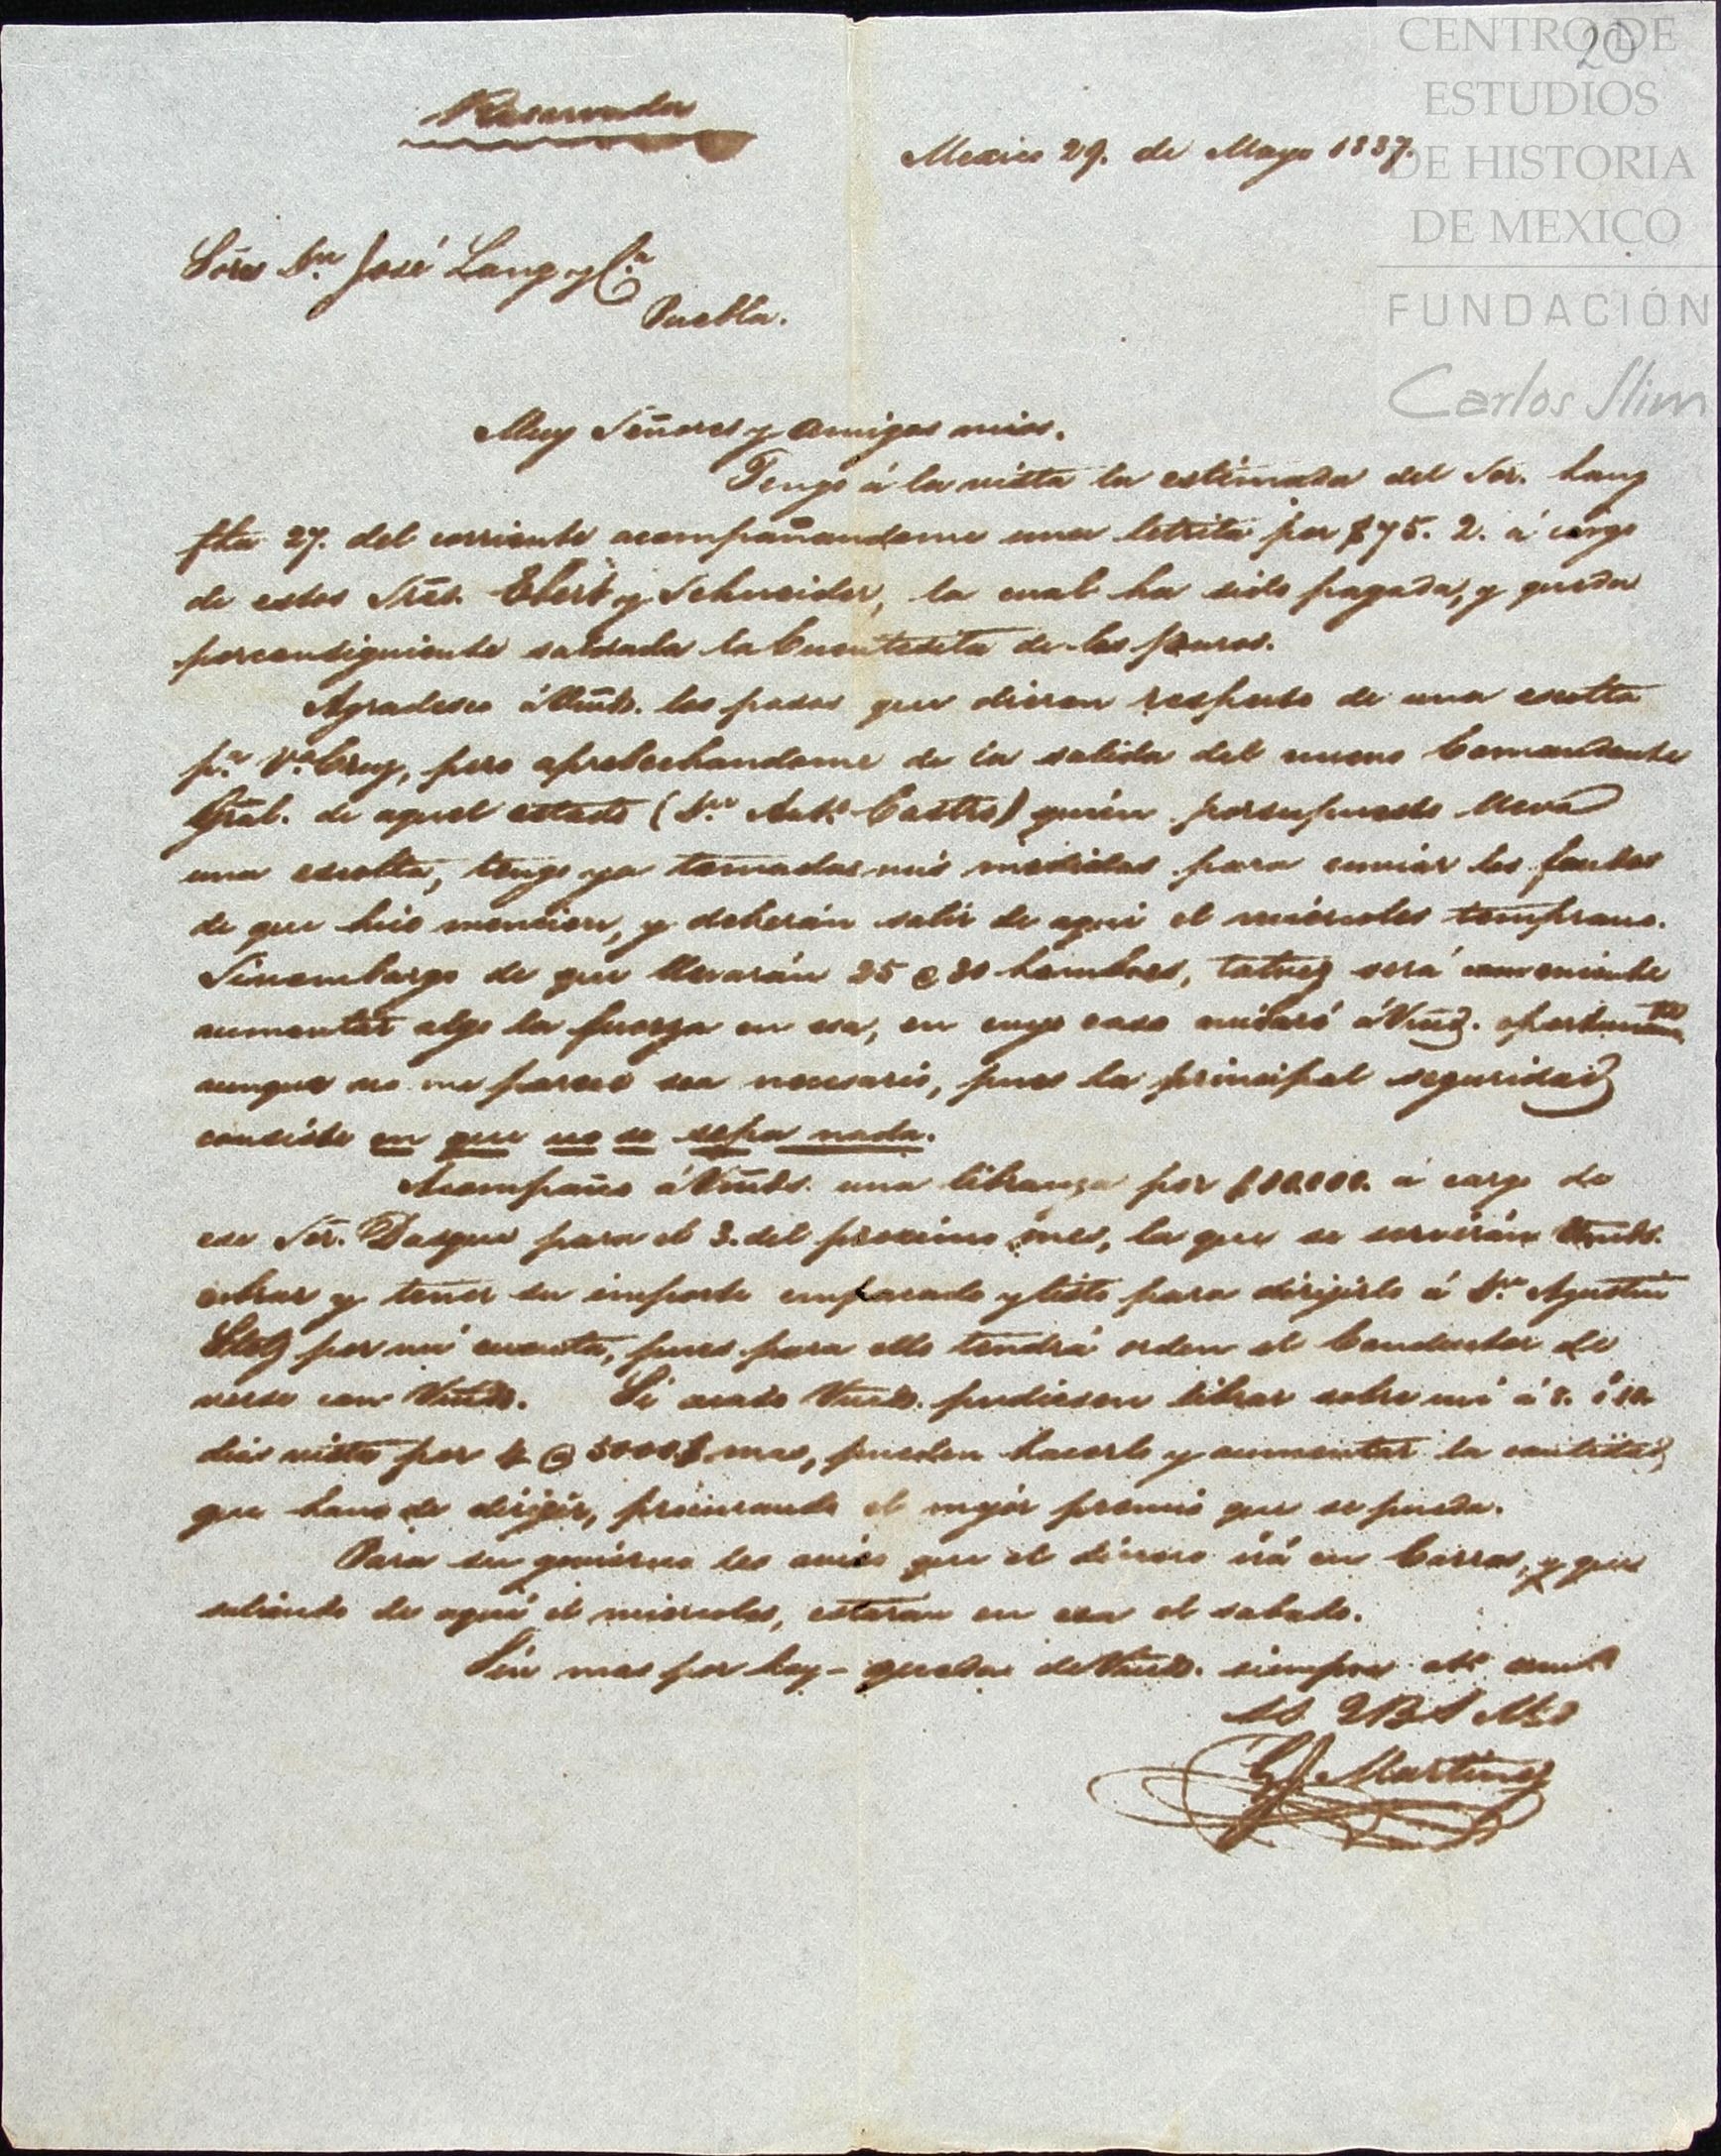 20
CENTRO DE
ESTUDIOS
DE HISTORIA
DE MEXICO
FUNDACIÓN
Carlos Slim
Reservada
Mexico 29. de Mayo 1837.
Sōres Dn. José Lang y Ca.
Puebla.
Muy Señores y amigos mios.
Tengo á la vista la estimada del Sor. Lang
fha 27. del corriente acompañandome una letrita por $75. 2. á cargo
de estos Sres. Ebert y Schneider, la cual ha sido pagada, y queda
porconsiguiente saldada la Cuentesita de los
Agradesco á Vmds. los pasos que dieron respecto de una escolta
pa. Va. Cruz, pero aprobechandome de la salida del nuevo Comandante
Gral. de aquel estado (Dn. Anto. Castro) quién porsupuesto lleva
una escolta, tengo ya tomadas mis medidas para enviar los fondos
de que hice mencion, y deberán salir de aqui el miércoles temprano.
Sinembargo de que llevarán 25 @ 30 hombres, talvez será conveniente
aumentar algo la fuerza en esa, en cuyo caso avisaré á Vmds. oportunamte.
aunque no me parece sea necesario, pues la principal seguridad
consiste en que no se sepa nada.
Acompaño á Vmds. una libranza por á cargo de
ese Sōr. Dasque para el 3. del proximo mes, la que se servirán Vmds.
cobrar y tener su importe emparado y listo para dirijirlo á Dn. Agustin
Stolz por mi cuenta, pues para ello tendrá orden el Conductor de
verse con Vmds. Si acaso Vmds. pudiesen librar sobre mi á 8. ó 10.
dias vista por 4 @ 5000$ mas, pueden hacerlo y aumentar la cantidad,
que hano de dirijir, procurando el mejór premio que se pueda.
Para su govierno les aviso que el dinero irá en Carros, y que
saliendo de aqui el miercoles, estarán en esa el sabado.
Sin mas por hoy - quedo de Vmds. siempre ato. amo.
SS. Q B S Ms
Martinez